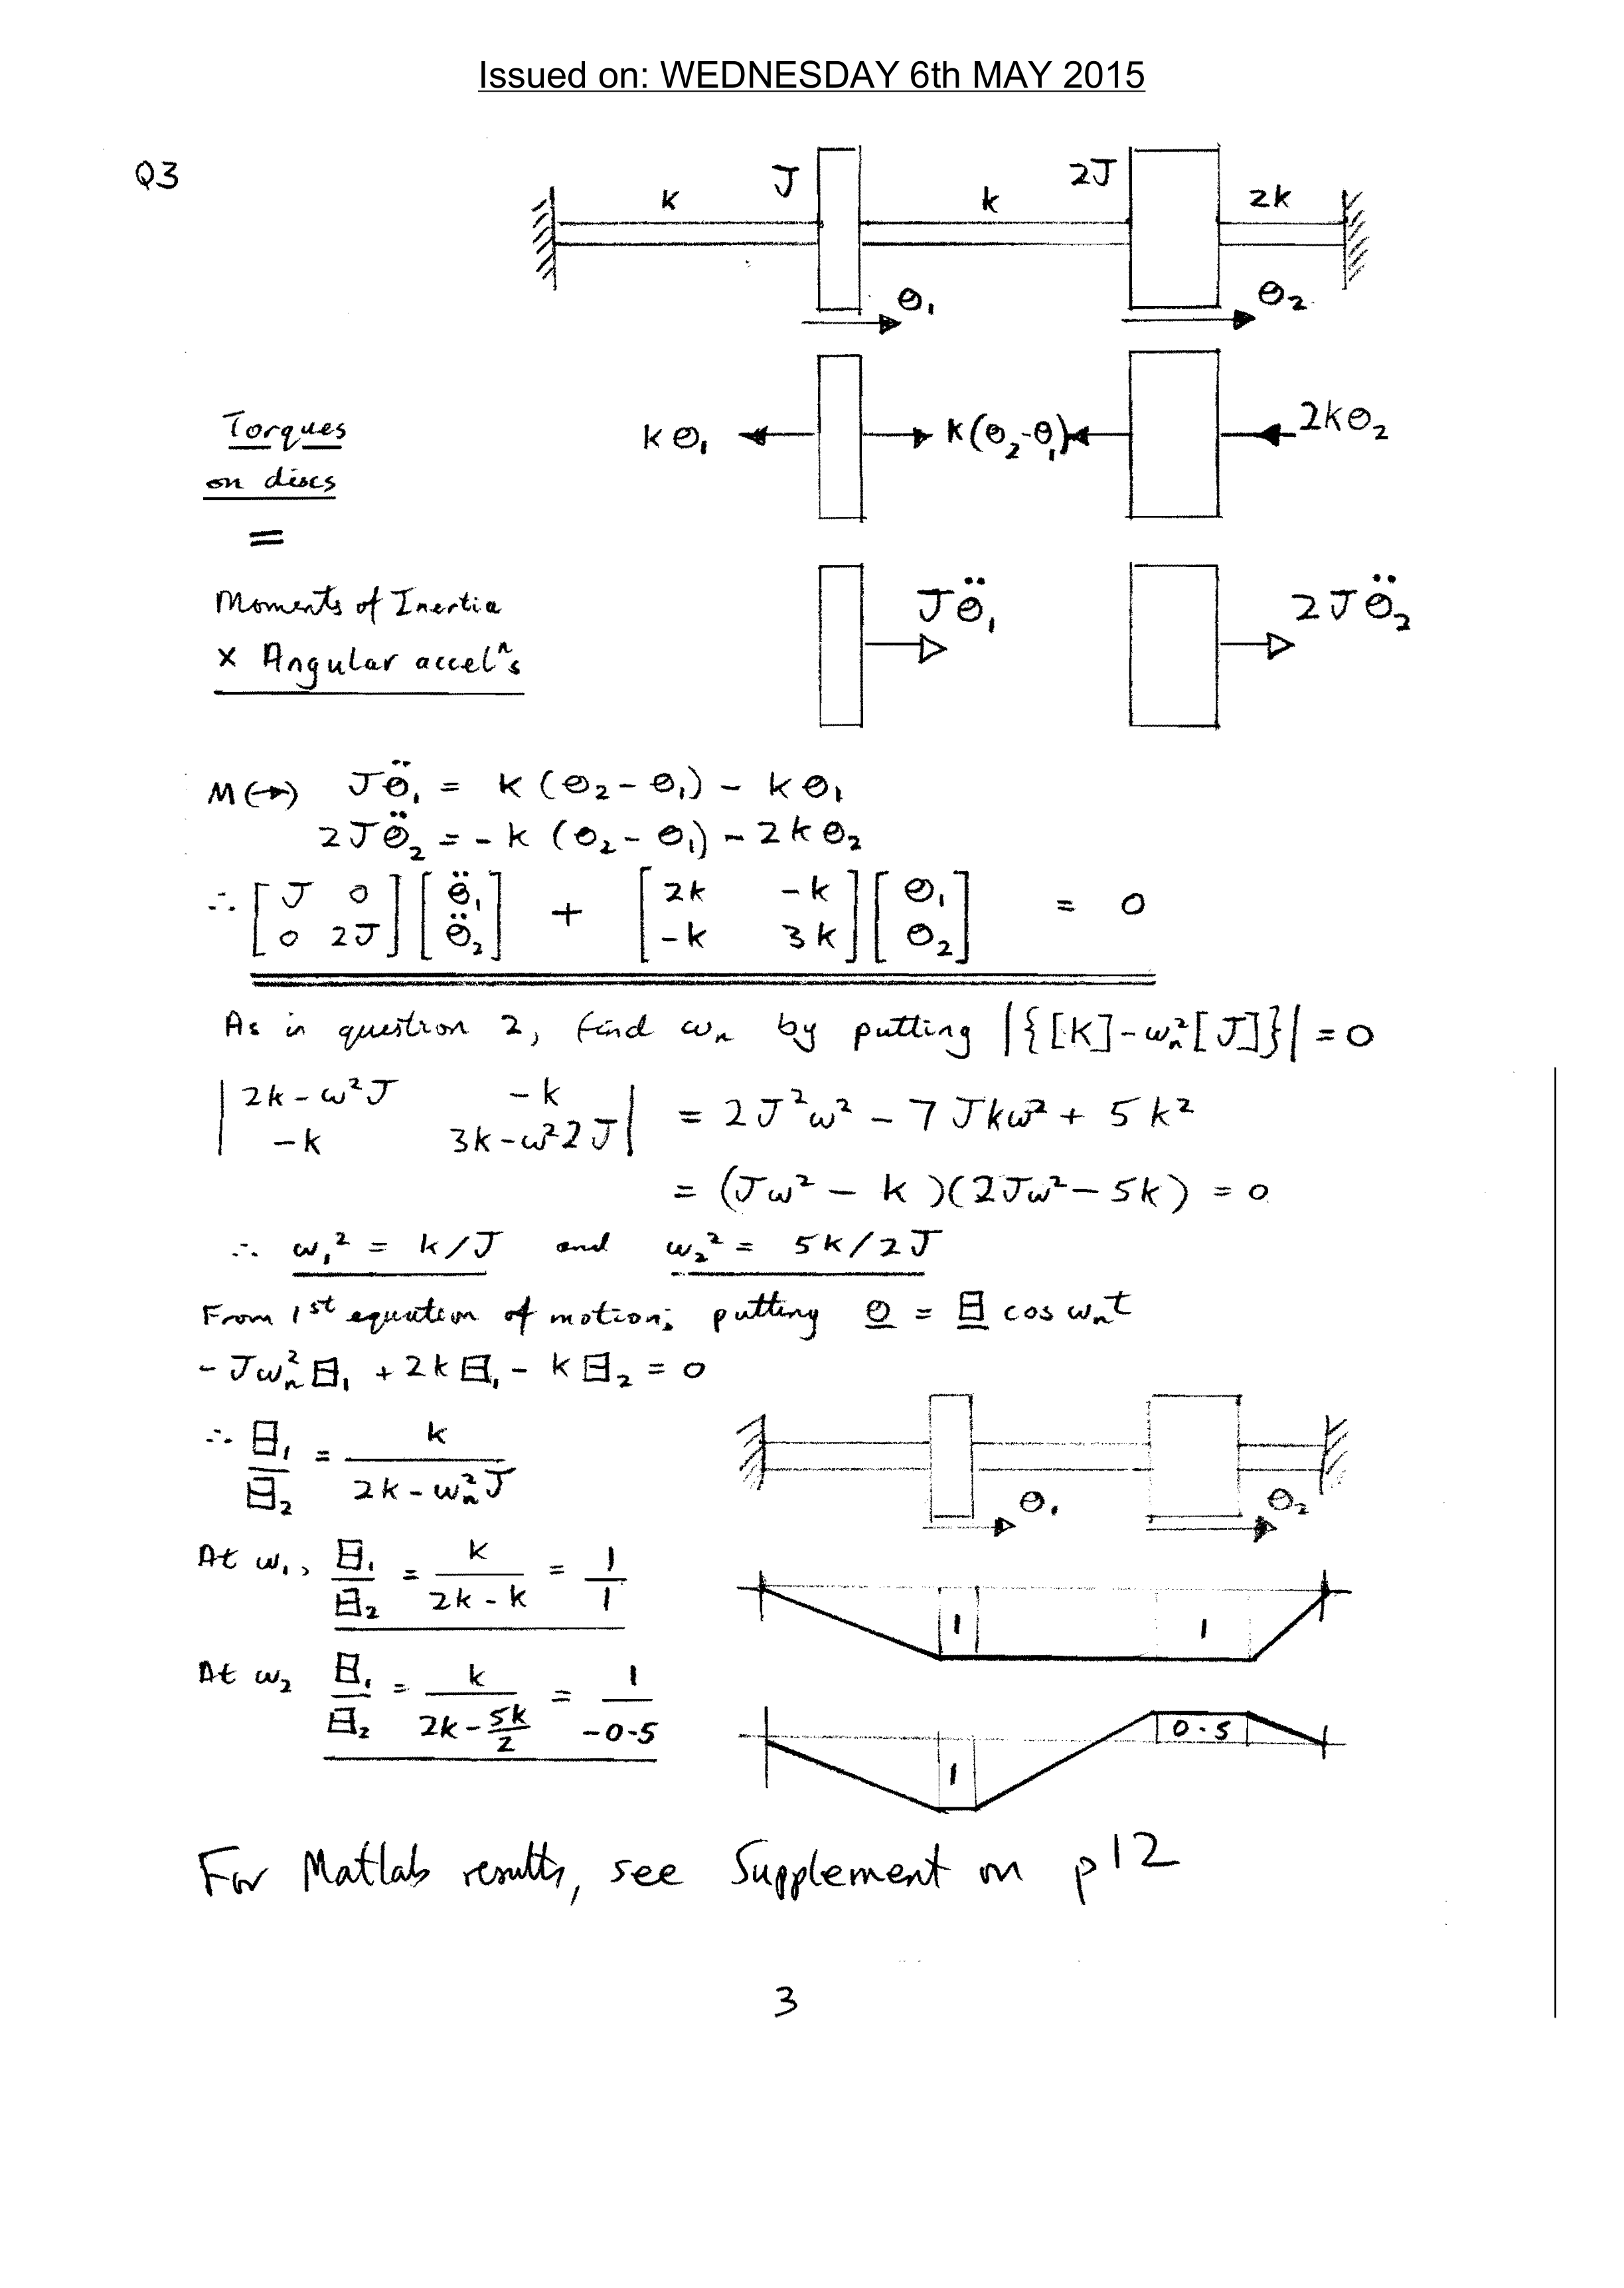 Issued on: WEDNESDAY 6th MAY 2015
Q3
k J k 2J 2k
θ₁ θ₂
Torques
on discs
kθ₁ k(θ₂-θ₁) 2kθ₂
=
Moments of Inertia
× Angular accelⁿs
Jθ̈₁ 2Jθ̈₂
M(→) Jθ̈₁ = k(θ₂-θ₁) - kθ₁
2Jθ̈₂ = -k(θ₂-θ₁) - 2kθ₂
∴ [J 0; 0 2J] [θ̈₁; θ̈₂] + [2k -k; -k 3k] [θ₁; θ₂] = 0
As in question 2, find ωₙ by putting |{[K]-ωₙ²[J]}| = 0
|2k-ω²J -k; -k 3k-ω²2J| = 2J²ω² - 7Jkω² + 5k²
= (Jω² - k)(2Jω² - 5k) = 0
∴ ω₁² = k/J and ω₂² = 5k/2J
From 1st equation of motion; putting θ = Θ cos ωₙt
-Jωₙ²Θ₁ + 2kΘ₁ - kΘ₂ = 0
∴ Θ₁/Θ₂ = k/(2k-ωₙ²J)
θ₁ θ₂
At ω₁, Θ₁/Θ₂ = k/(2k-k) = 1/1
1 1
At ω₂ Θ₁/Θ₂ = k/(2k-5k/2) = 1/-0.5
1 0.5
For Matlab results, see Supplement on p12
3